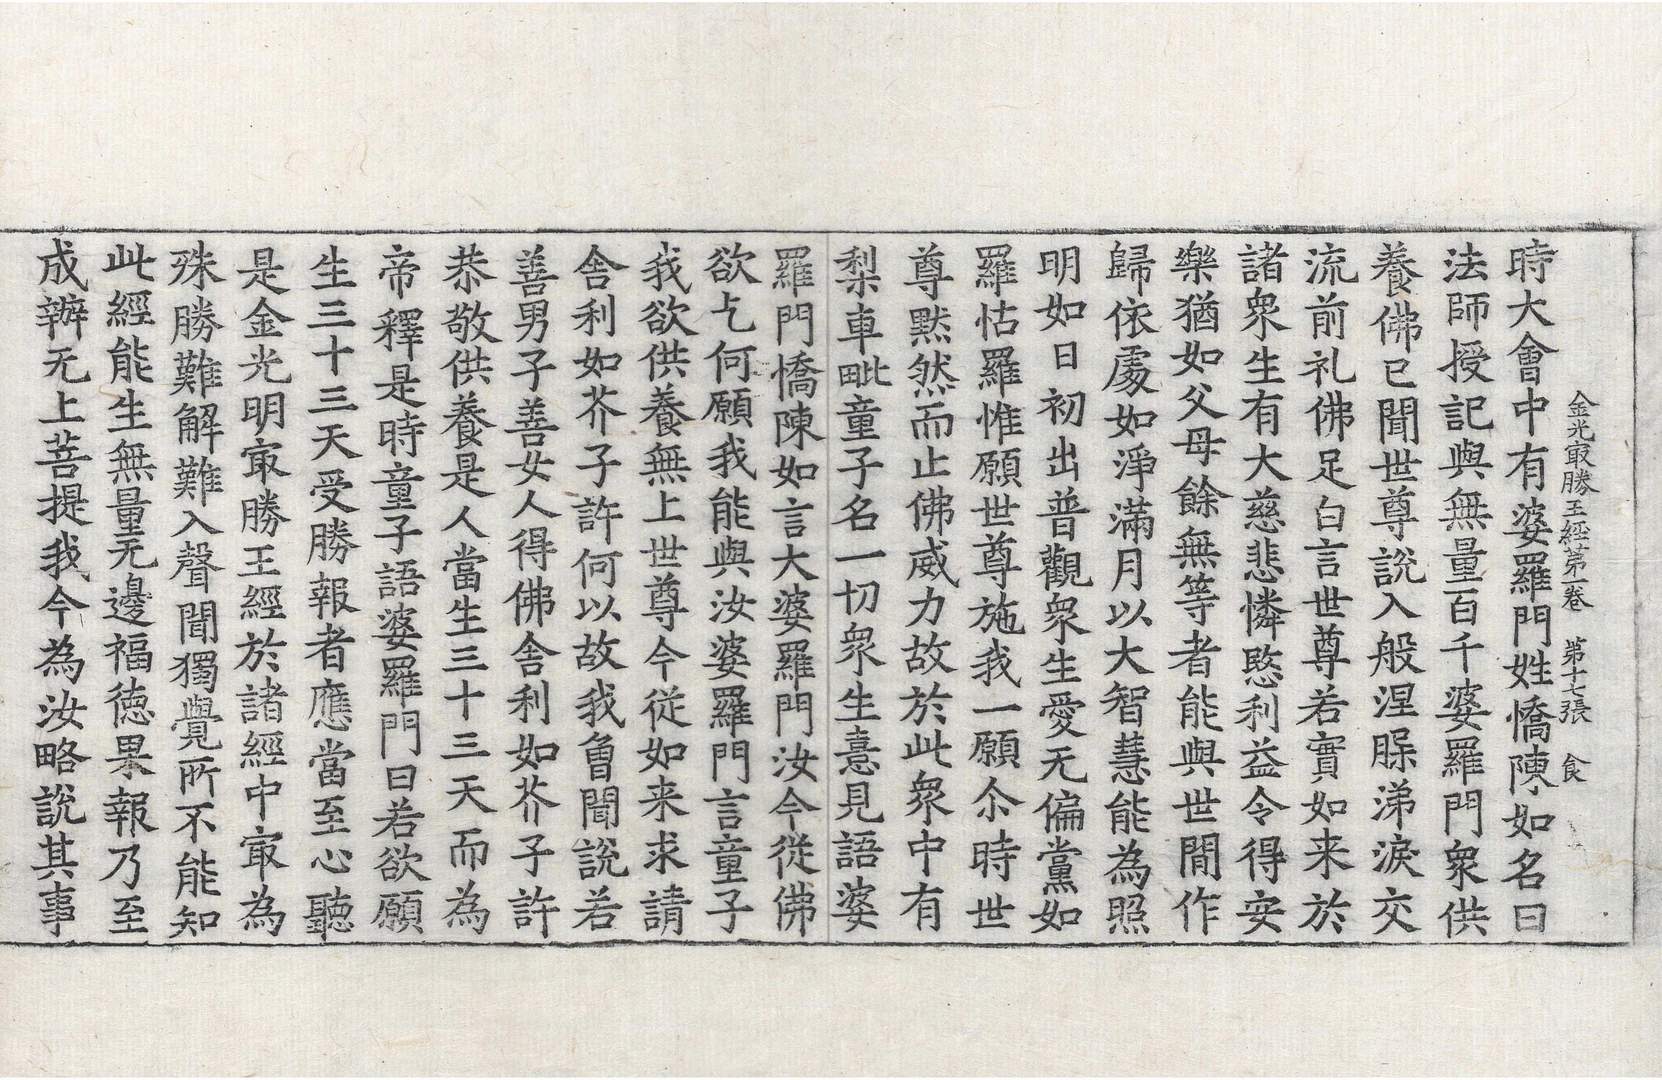 金光㝡勝王經第一卷　第十七張　食
時大會中有婆羅門姓憍陳如名曰
法師授記與無量百千婆羅門衆供
養佛已聞世尊說入般涅槃涕淚交
流前礼佛足白言世尊若實如来於
諸衆生有大慈悲憐愍利益令得安
樂猶如父母餘無等者能與世間作
歸依處如淨滿月以大智慧能為照
明如日初出普觀衆生愛无偏黨如
羅怙羅惟願世尊施我一願尒時世
尊黙然而止佛威力故於此衆中有
梨車毗童子名一切衆生憙見語婆
羅門憍陳如言大婆羅門汝今從佛
欲乞何願我能與汝婆羅門言童子
我欲供養無上世尊今從如来求請
舍利如芥子許何以故我曾聞說若
善男子善女人得佛舍利如芥子許
恭敬供養是人當生三十三天而為
帝釋是時童子語婆羅門曰若欲願
生三十三天受勝報者應當至心聽
是金光明㝡勝王經於諸經中㝡為
殊勝難解難入聲聞獨覺所不能知
此經能生無量无邊福德果報乃至
成辦无上菩提我今為汝略說其事